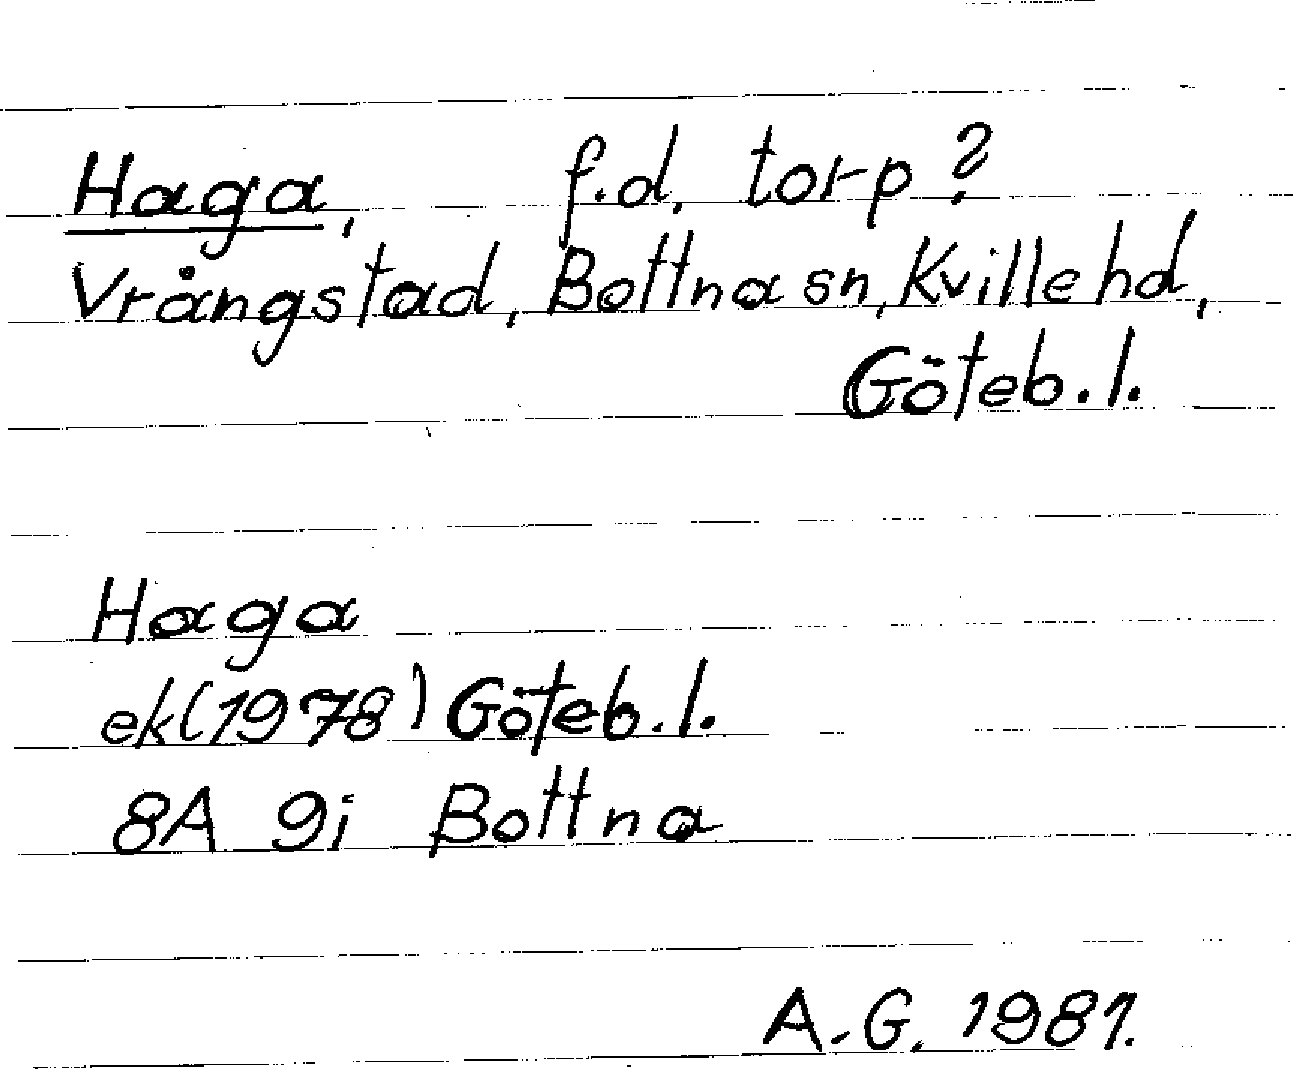 Haga, f.d. torp?
Vrångstad, Bottna sn, Kville hd,
Göteb. l.
Haga
ek (1978) Göteb. l.
8A 9i Bottna
A. G. 1981.